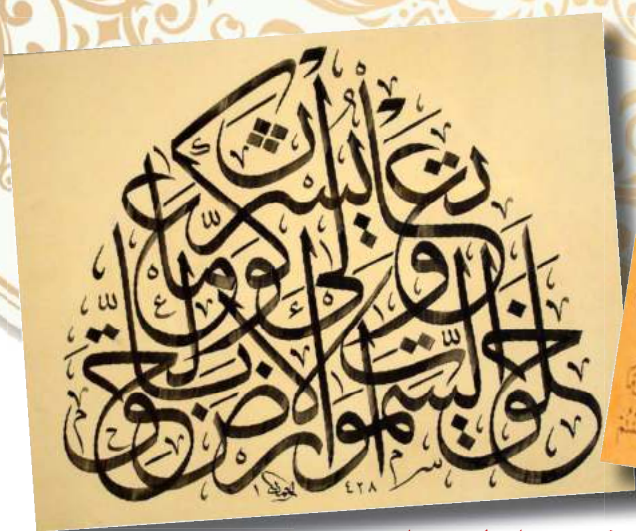 خَلَقَ السَّمٰوٰتِ وَالْاَرْضَ بِالْحَقِّ
تَعٰالىٰ عَمَّا يُشْرِكُونَ
١ ٤٢٨